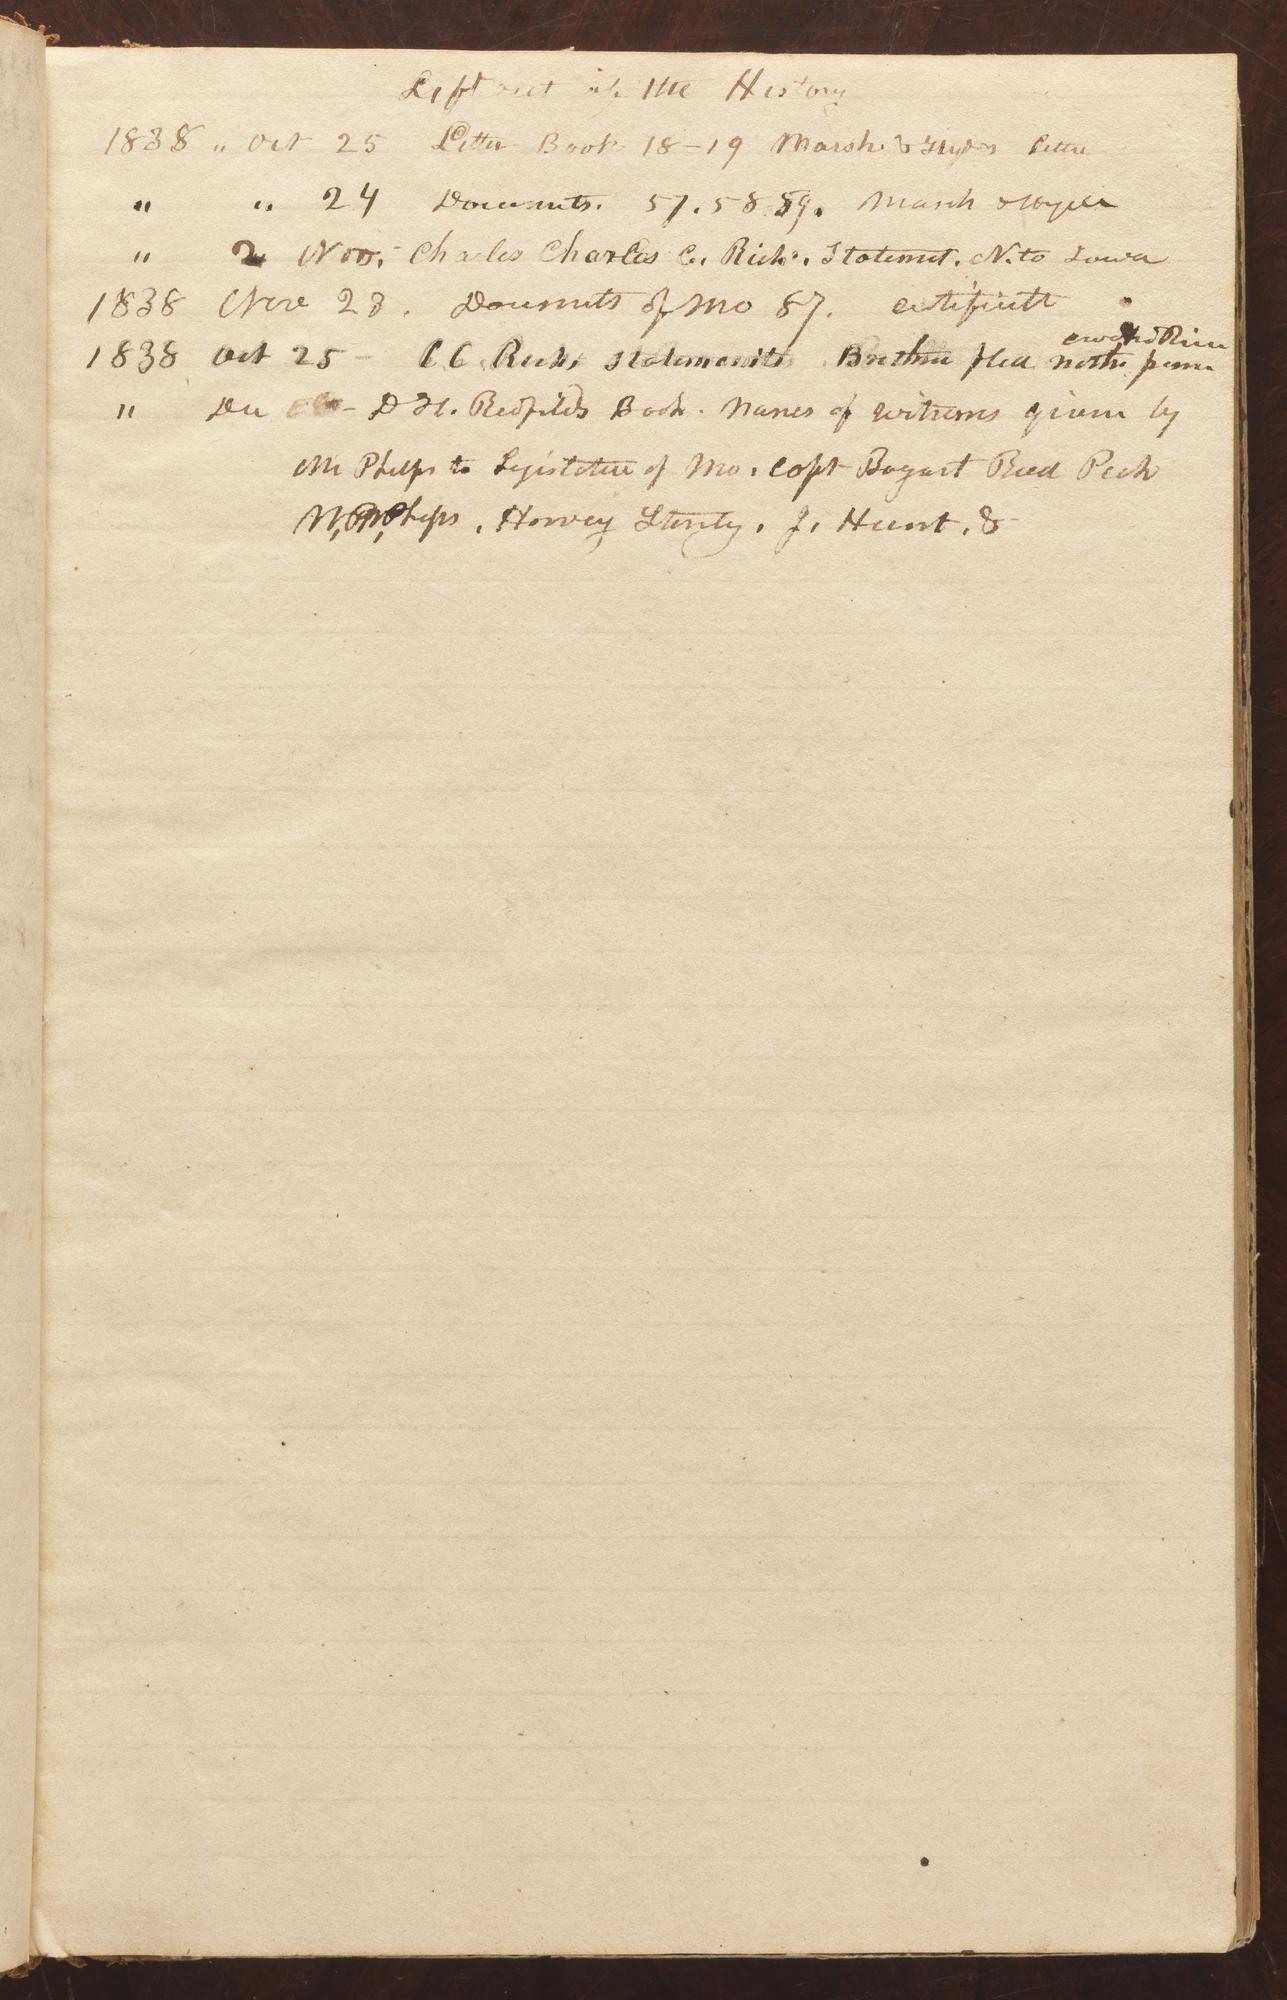 Left out of the History
1838 „ Oct 25 Letter Book 18-19 Marsh & Hydes letter
" " 24 Documents. 57. 58 59. Marsh & Hyde
" 2 Nov. Charles Charles C. Rich. Statemnt. N. to Iowa
1838 Nove 28. Documents of Mo 87. certificate
1838 Oct 25- C C. Rich, statements Brethren fled north from
crooked River
" Dec - D. H. Redfield's Book. Names of witness given by
Mr Phelps to Legistature of Mo. Capt Bogart Reed Peck
W, W, Phelps. Hervey . J. Hunt. &